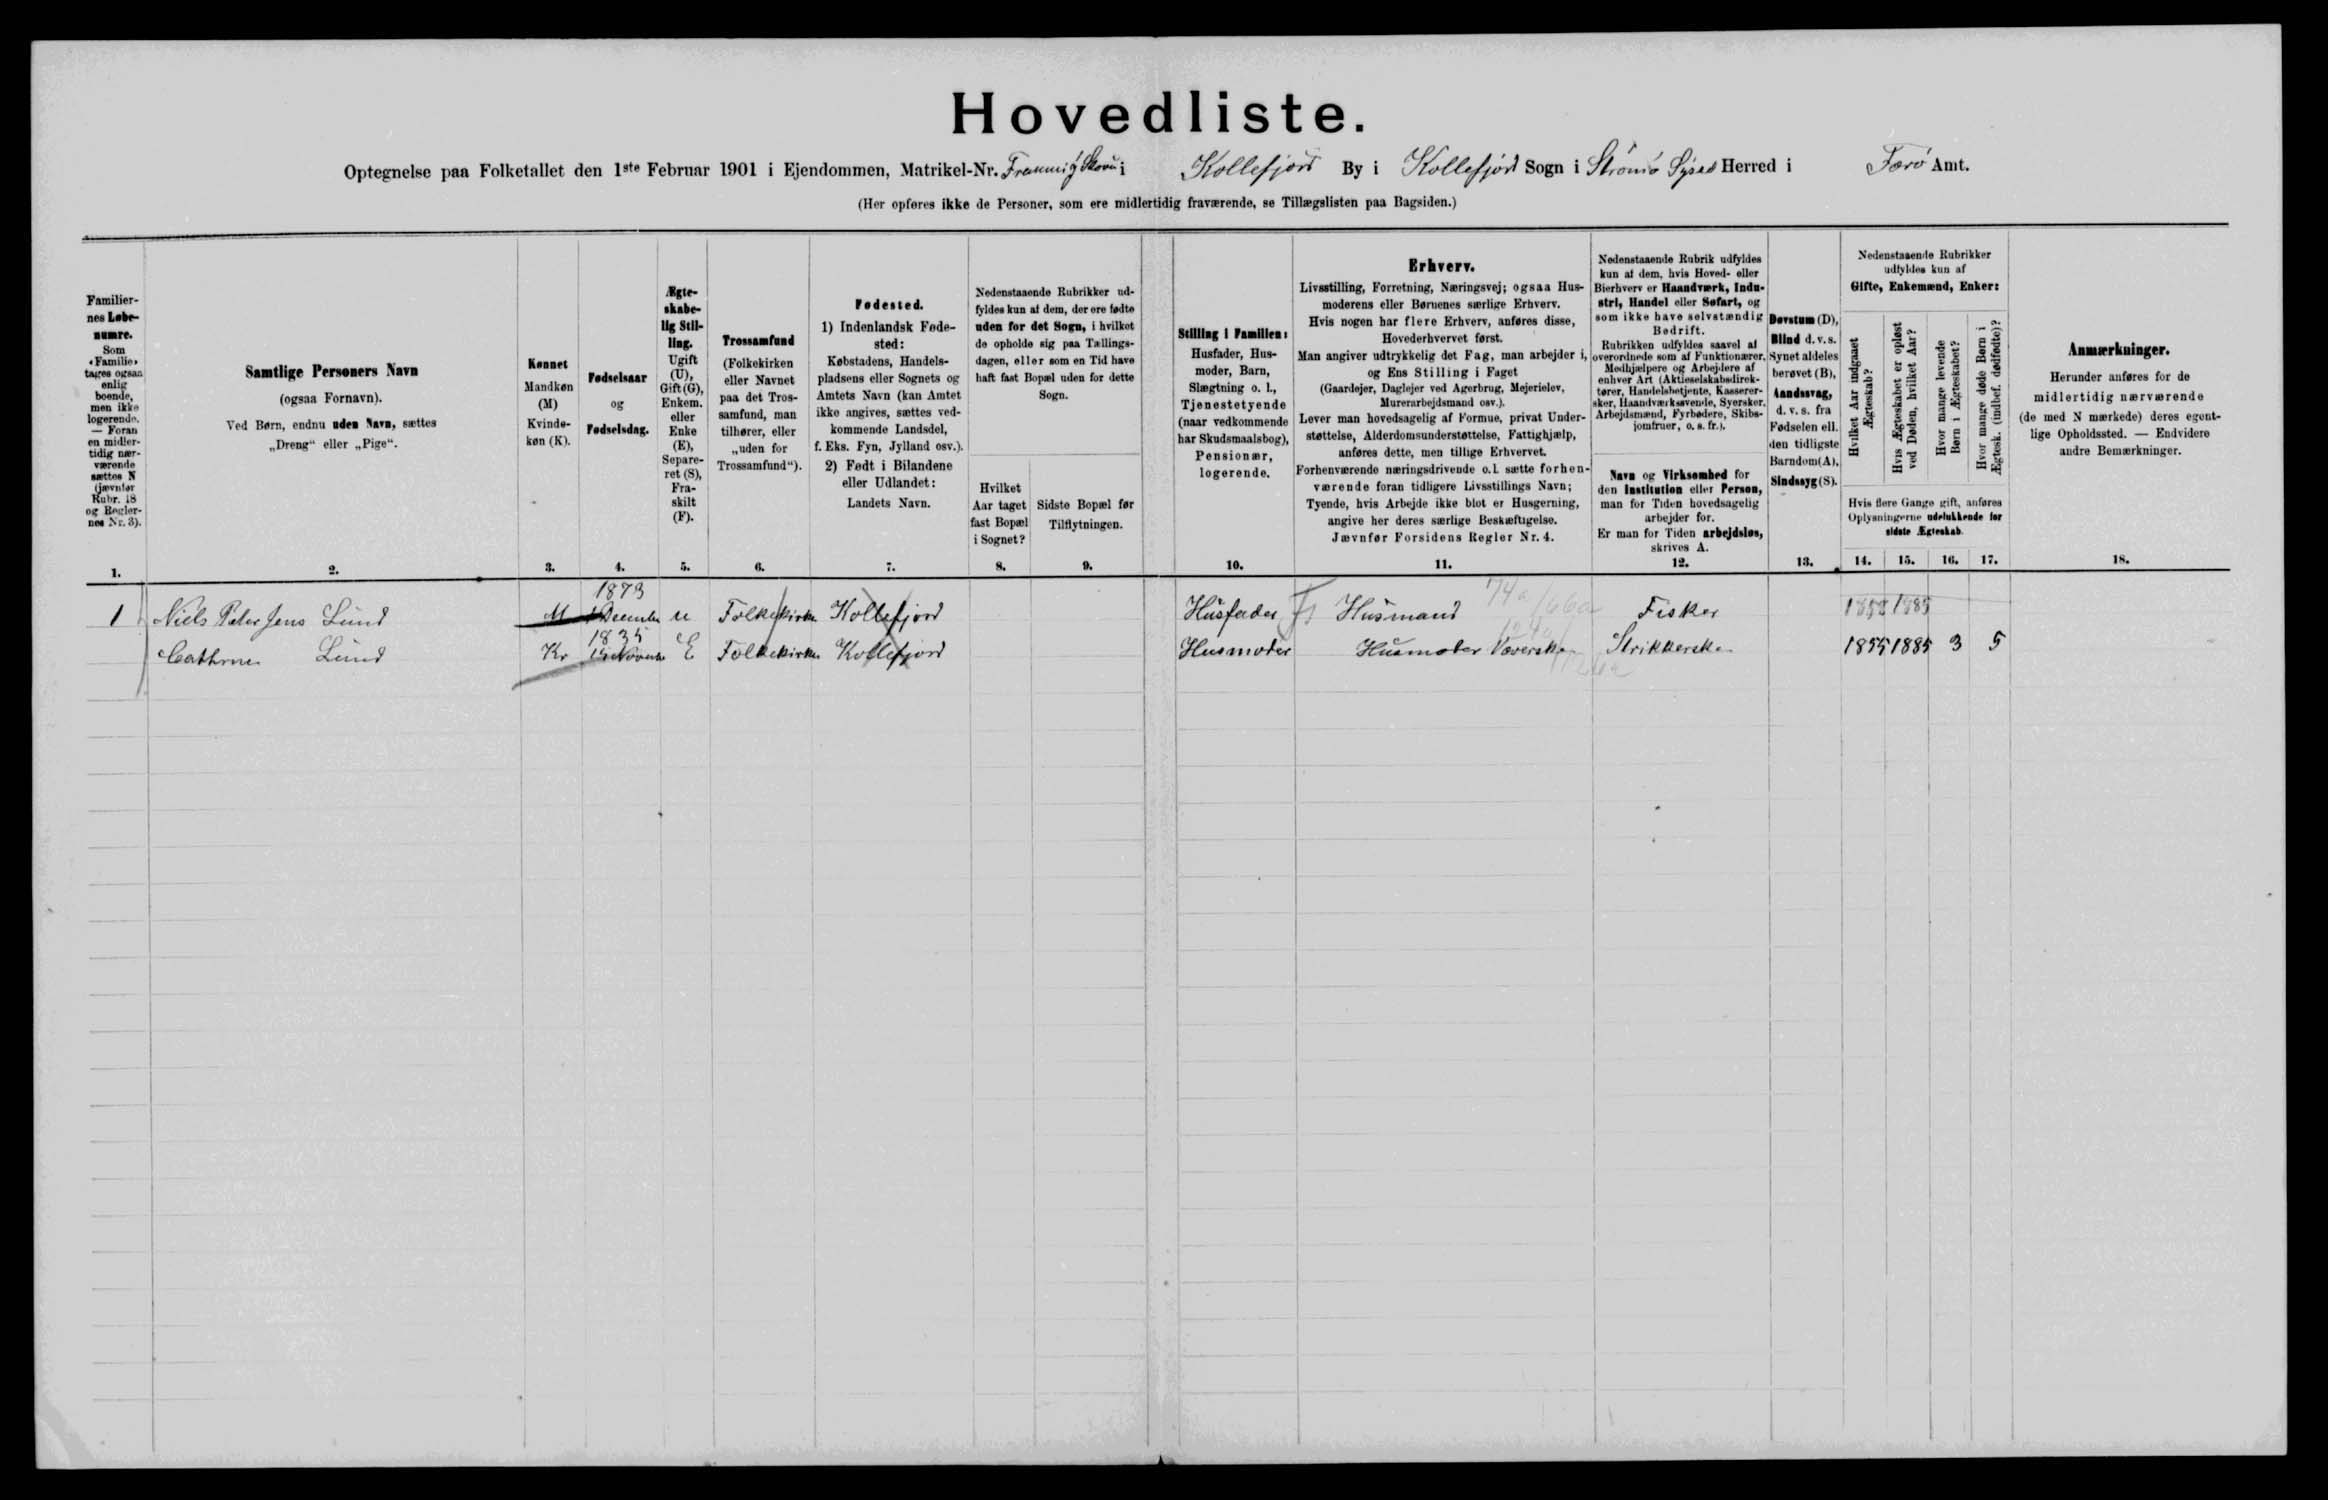 Hovedliste.
Optegnelse paa Folketallet den 1ste Februar 1901 i Ejendommen, Matrikel-Nr. i Kollefjord By i Kollefjord Sogn i Strömö Sysel Herred i Færö Amt.
(Her opføres ikke de Personer, som ere midlertidig fraværende, se Tillægslisten paa Bagsiden.)
Familiernes Løbenumre.
Som «Familie» tages ogsaa enlig boende, men ikke logerende. — Foran en midlertidig nærværende sættes N (jævnfør Rubr. 18 og Reglernes Nr. 3).
1.
Samtlige Personers Navn
(ogsaa Fornavn).
Ved Børn, endnu uden Navn, sættes
„Dreng“ eller „Pige“.
2.
Kønnet
Mandkøn (M)
Kvindekøn (K).
3.
Fødselsaar
og
Fødselsdag.
4.
Ægteskabelig Stilling.
Ugift (U), Gift (G), Enkem. eller Enke (E), Separeret (S), Fraskilt (F).
5.
Trossamfund
(Folkekirken eller Navnet paa det Trossamfund, man tilhører, eller „uden for Trossamfund“).
6.
Fødested.
1) Indenlandsk Fødested:
Købstadens, Handelspladsens eller Sognets og Amtets Navn (kan Amtet ikke angives, sættes vedkommende Landsdel, f. Eks. Fyn, Jylland osv.).
2) Født i Bilandene eller Udlandet:
Landets Navn.
7.
Nedenstaaende Rubrikker udfyldes kun af dem, der ere fødte uden for det Sogn, i hvilket de opholde sig paa Tællingsdagen, eller som en Tid have haft fast Bopæl uden for dette Sogn.
Hvilket Aar taget fast Bopæl i Sognet?
8.
Sidste Bopæl før Tilflytningen.
9.
Stilling i Familien:
Husfader, Husmoder, Barn, Slægtning o. l., Tjenestetyende (naar vedkommende har Skudsmaalsbog), Pensionær, logerende.
10.
Erhverv.
Livsstilling, Forretning, Næringsvej; ogsaa Husmoderens eller Børnenes særlige Erhverv.
Hvis nogen har flere Erhverv, anføres disse, Hovederhvervet først.
Man angiver udtrykkelig det Fag, man arbejder i, og Ens Stilling i Faget
(Gaardejer, Daglejer ved Agerbrug, Mejerielev, Murerarbejdsmand osv.).
Lever man hovedsagelig af Formue, privat Understøttelse, Alderdomsunderstøttelse, Fattighjælp, anføres dette, men tillige Erhvervet.
Forhenværende næringsdrivende o. l. sætte forhenværende foran tidligere Livsstillings Navn;
Tyende, hvis Arbejde ikke blot er Husgerning, angive her deres særlige Beskæftigelse.
Jævnfør Forsidens Regler Nr. 4.
11.
Nedenstaaende Rubrik udfyldes kun af dem, hvis Hoved- eller Bierhverv er Haandværk, Industri, Handel eller Søfart, og som ikke have selvstændig Bedrift.
Rubrikken udfyldes saavel af overordnede som af Funktionærer, Medhjælpere og Arbejdere af enhver Art (Aktieselskabsdirektører, Handelsbetjente, Kasserersker, Haandværkssvende, Syersker, Arbejdsmænd, Fyrbødere, Skibsjomfruer, o. s. fr.).
Navn og Virksomhed for den Institution eller Person, man for Tiden hovedsagelig arbejder for.
Er man for Tiden arbejdsløs, skrives A.
12.
Døvstum (D), Blind d. v. s. Synet aldeles berøvet (B), Aandssvag, d. v. s. fra Fødselen ell. den tidligste Barndom (A), Sindssyg (S).
13.
Nedenstaaende Rubrikker udfyldes kun af
Gifte, Enkemænd, Enker:
Hvilket Aar indgaaet Ægteskab?
Hvis Ægteskabet er opløst ved Døden, hvilket Aar?
Hvor mange levende Børn i Ægteskabet?
Hvor mange døde Børn i Ægtesk. (indbef. dødfødte)?
Hvis flere Gange gift, anføres Oplysningerne udelukkende for sidste Ægteskab.
14. 15. 16. 17.
Anmærkninger.
Herunder anføres for de midlertidig nærværende (de med N mærkede) deres egentlige Opholdssted. — Endvidere andre Bemærkninger.
18.
1 Niels Peter Jens Lund M 1873 December U Folkekirke Kollefjord Husfader Husmand 74a Fisker 1885
Cathrine Lund Kv 1835 November E Folkekirke Kollefjord Husmoder Husmoder Væverske Strikkerske 1855 1885 3 5